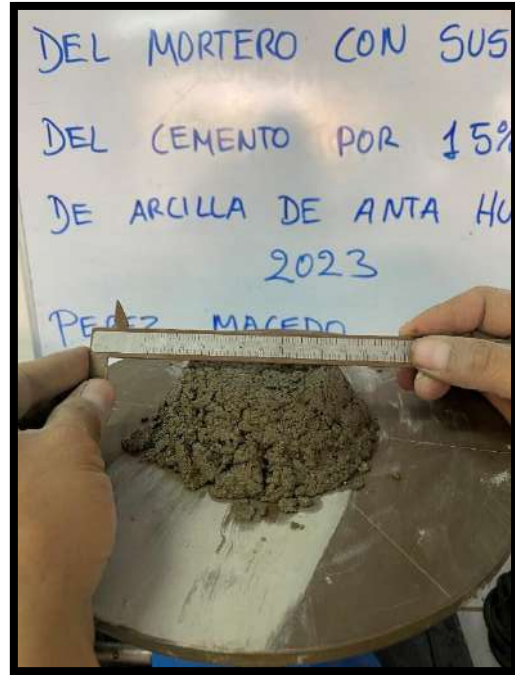 DEL MORTERO CON SUS
DEL CEMENTO POR 15%
DE ARCILLA DE ANTA HU
2023
PEREZ MACEDO